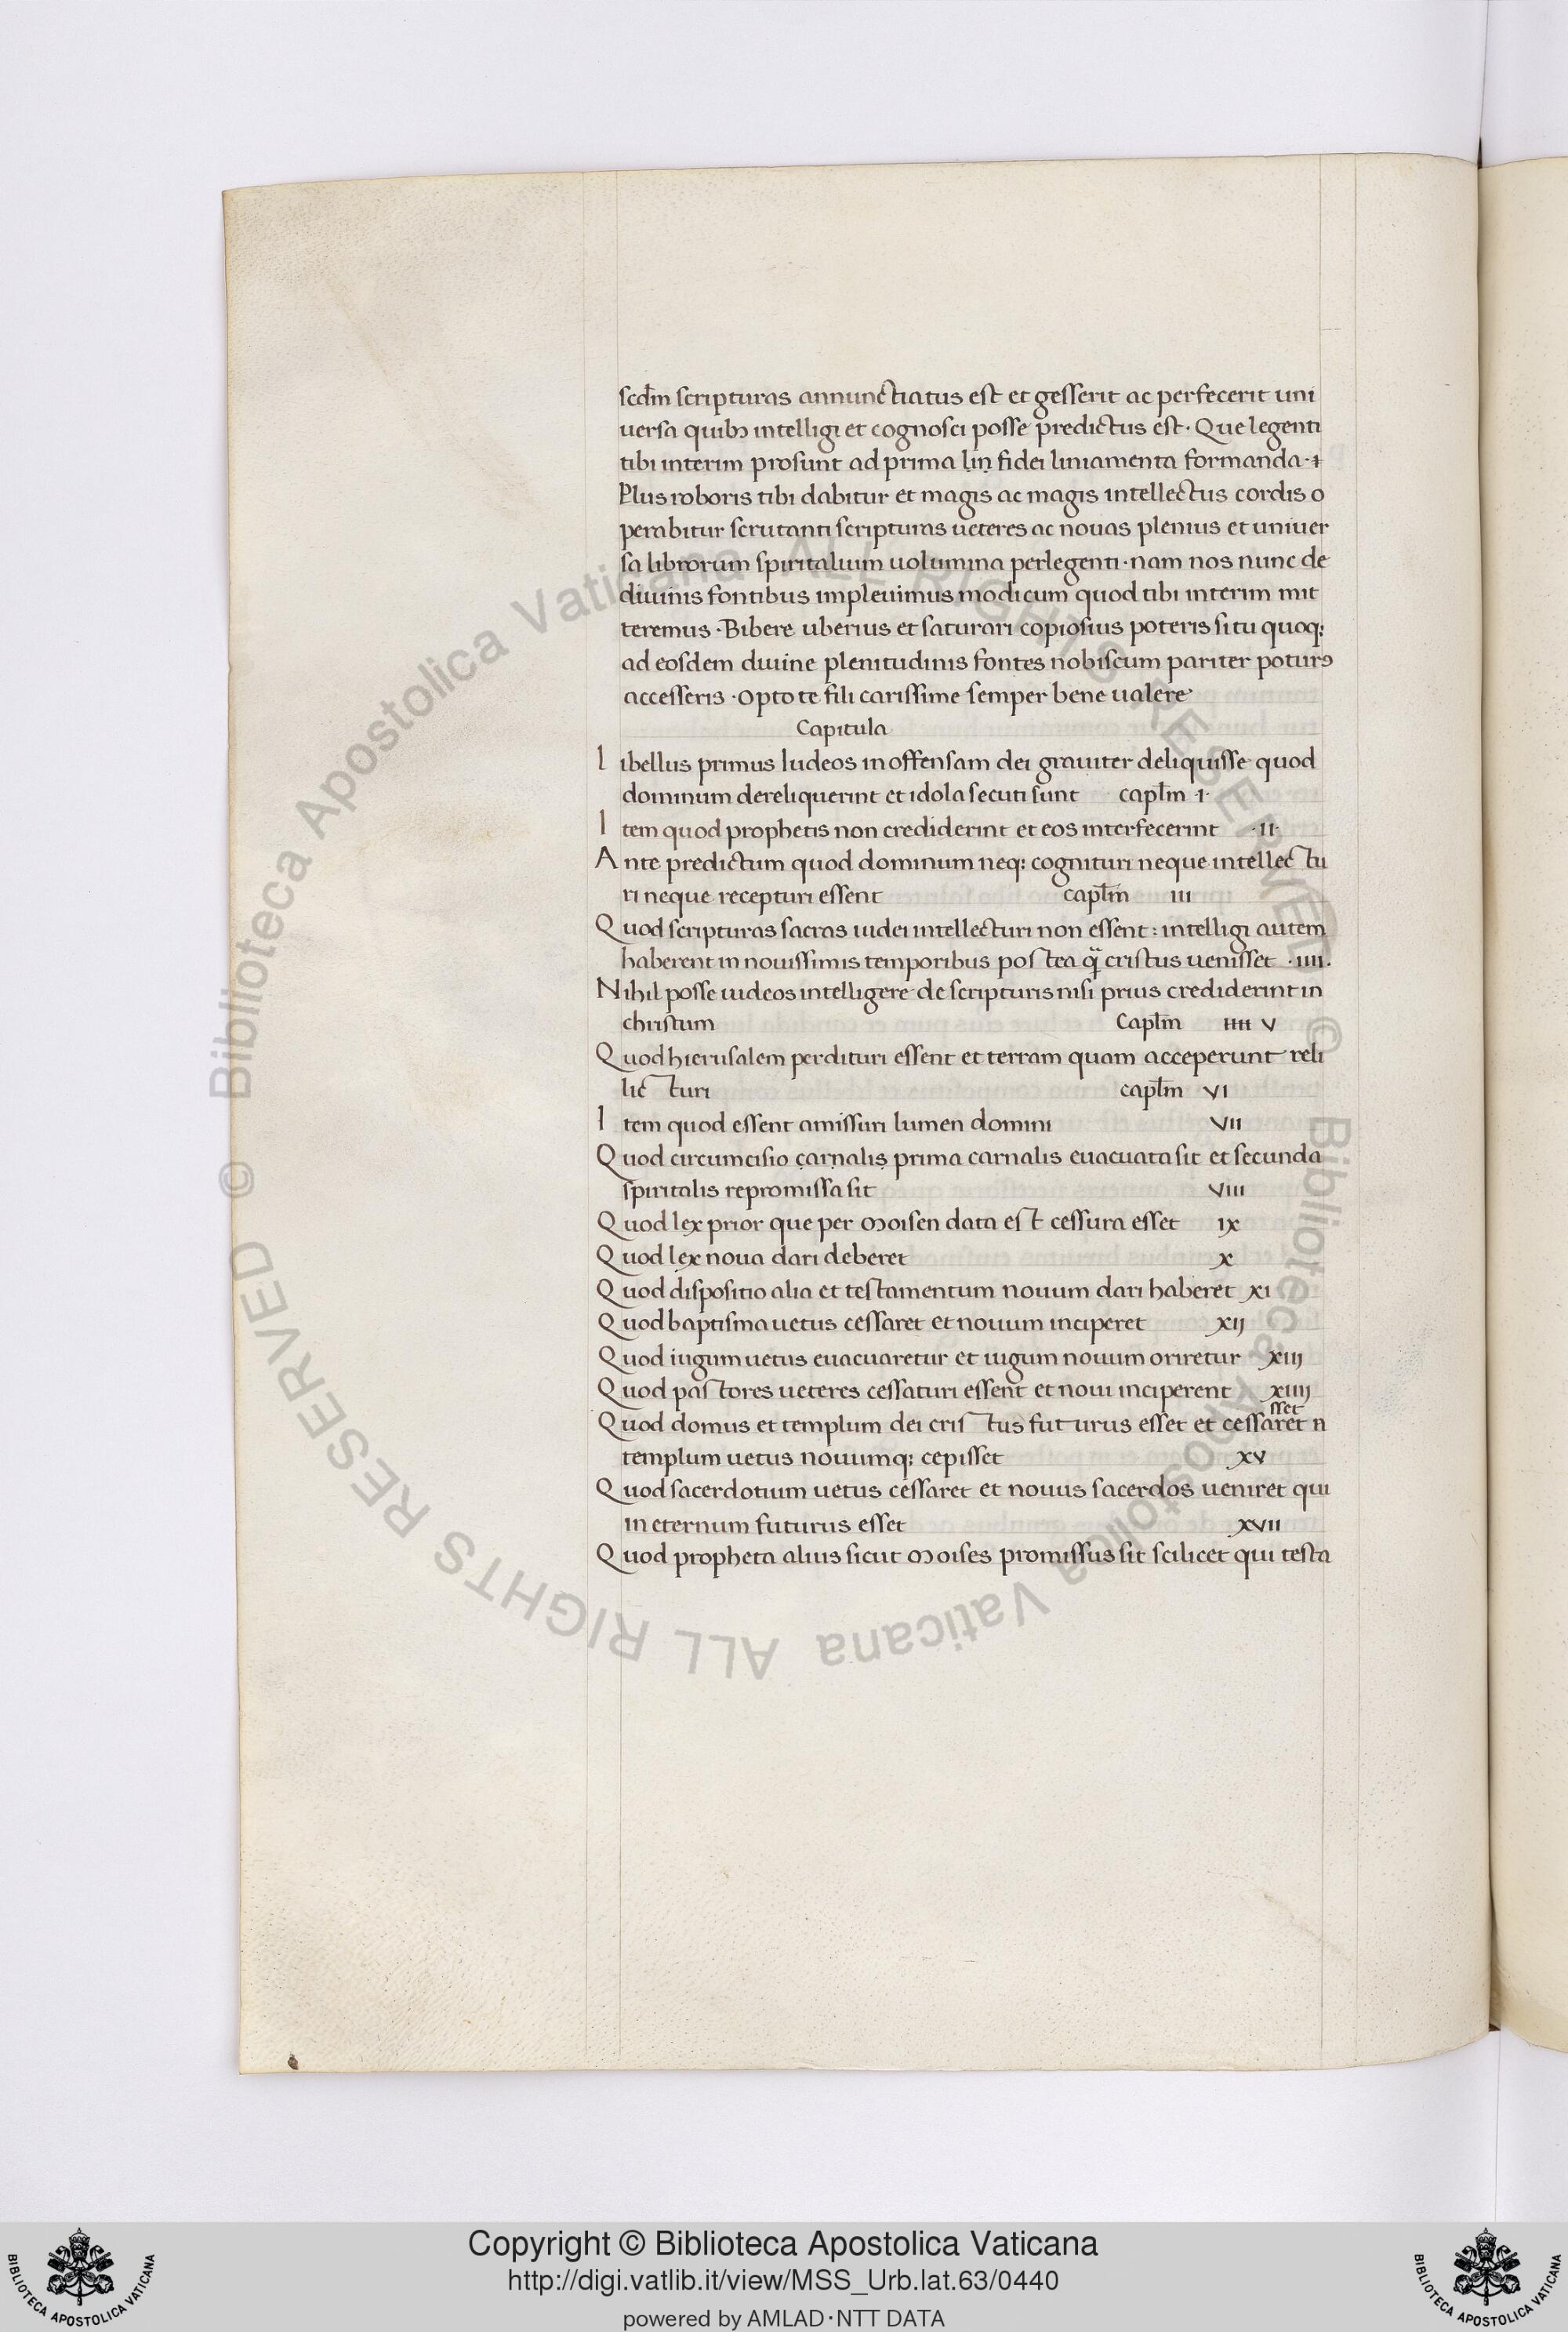 scdm scripturas annunctiatus est et gesserit ac perfecerit uni
uersa quibꝫ intelligi et cognosci posse predictus est · Que legenti
tibi interim prosunt ad prima lin fidei liniamenta formanda ·
Plus roboris tibi dabitur et magis ac magis intellectus cordis o
perabitur scrutanti scripturas ueteres ac nouas plenius et uniuer
sa librorum spiritalium uolumina perlegenti · nam nos nunc de
diuinis fontibus impleuimus modicum quod tibi interim mit
teremus · Bibere uberius et saturari copiosius poteris si tu quoqꝫ
ad eosdem diuine plenitudinis fontes nobiscum pariter poturꝯ
accesseris · Opto te fili carissime semper bene ualere
Capitula
Libellus primus Iudeos in offensam dei grauiter deliquisse quod
dominum dereliquerint et idola secuti sunt captm 1·
Item quod prophetis non crediderint et eos interfecerint ·II·
Ante predictum quod dominum neqꝫ cognituri neque intellectu
ri neque recepturi essent captm III
Quod scripturas sacras iudei intellecturi non essent : intelligi autem
haberent in nouissimis temporibus postea q̄ cristus uenisset ·IIII·
Nihil posse iudeos intelligere de scripturis nisi prius crediderint in
christum Captm IIII V
Quod hierusalem perdituri essent et terram quam acceperunt reli
licturi captm VI
Item quod essent amissuri lumen domini VII
Quod circumcisio carnalis prima carnalis euacuata sit et secunda
spiritalis repromissa sit VIII
Quod lex prior que per Moisen data est cessura esset IX
Quod lex noua dari deberet X
Quod dispositio alia et testamentum nouum dari haberet XI
Quod baptisma uetus cessaret et nouum inciperet XIJ
Quod iugum uetus euacuaretur et iugum nouum oriretur XIIJ
Quod pastores ueteres cessaturi essent et noui inciperent XIIIJ
Quod domus et templum dei cristus futurus esset et cessaret n
sset
templum uetus nouumqꝫ cepisset XV
Quod sacerdotium uetus cessaret et nouus sacerdos ueniret qui
in eternum futurus esset XVII
Quod propheta alius sicut Moises promissus sit scilicet qui testa
© Biblioteca Apostolica Vaticana ALL RIGHTS RESERVED
© Biblioteca Apostolica Vaticana ALL RIGHTS RESERVED
Copyright © Biblioteca Apostolica Vaticana
http://digi.vatlib.it/view/MSS_Urb.lat.63/0440
powered by AMLAD·NTT DATA
BIBLIOTECA APOSTOLICA VATICANA
BIBLIOTECA APOSTOLICA VATICANA